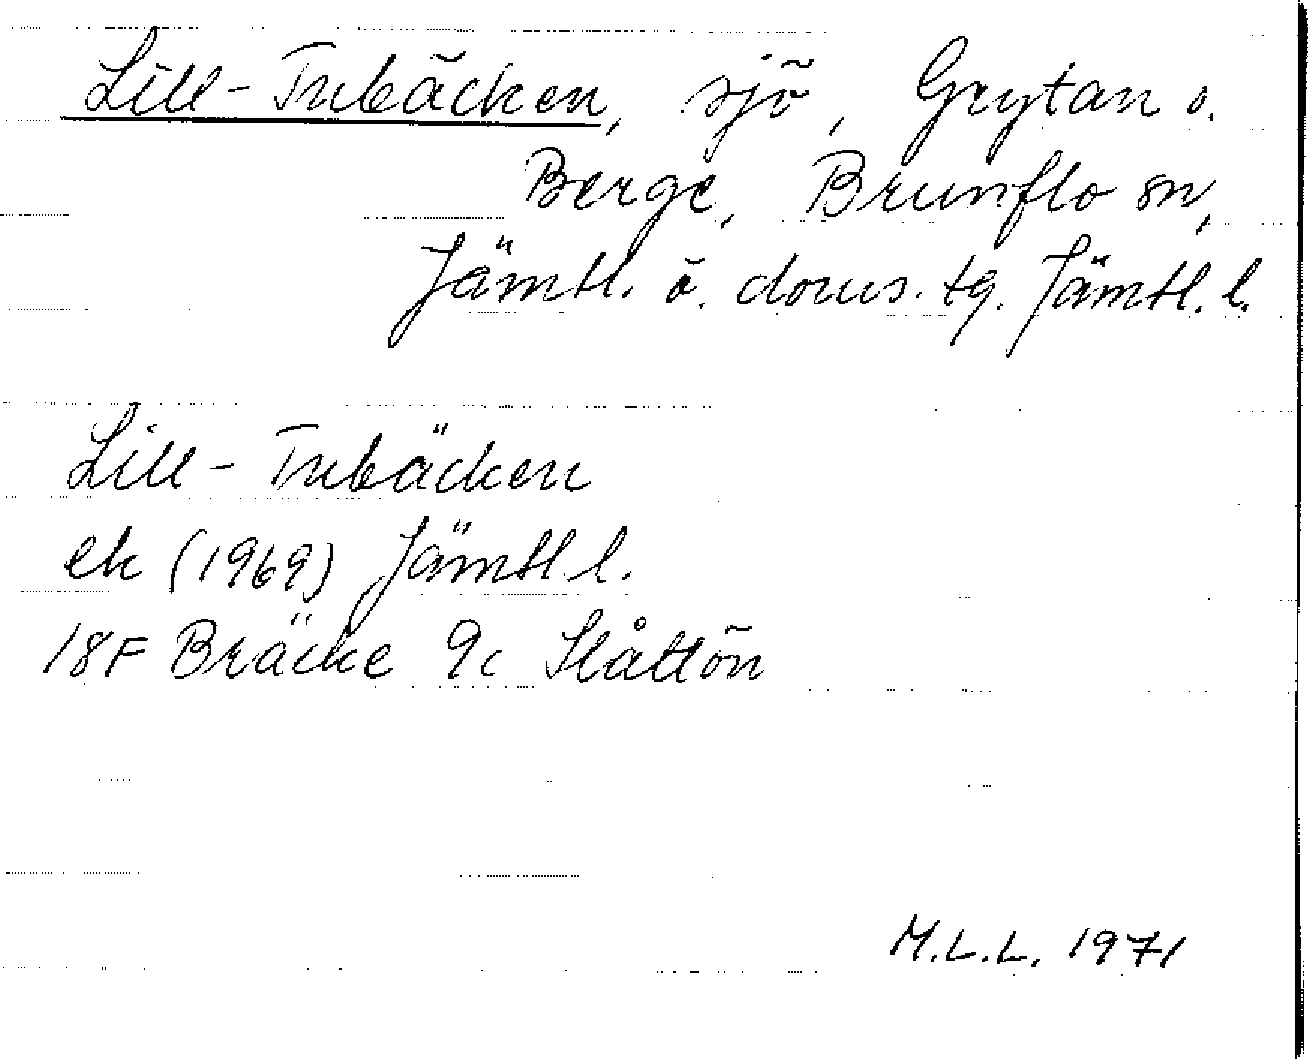 Lill-Tubäcken, sjö, Grytan o.
Berge, Brunflo sn,
Jämtl. ö. doms. tg. Jämtl. l.
Lill-Tubäcken
ek (1969) Jämtl. l.
18F Bräcke 9c Slåttön
M.L.L. 1971